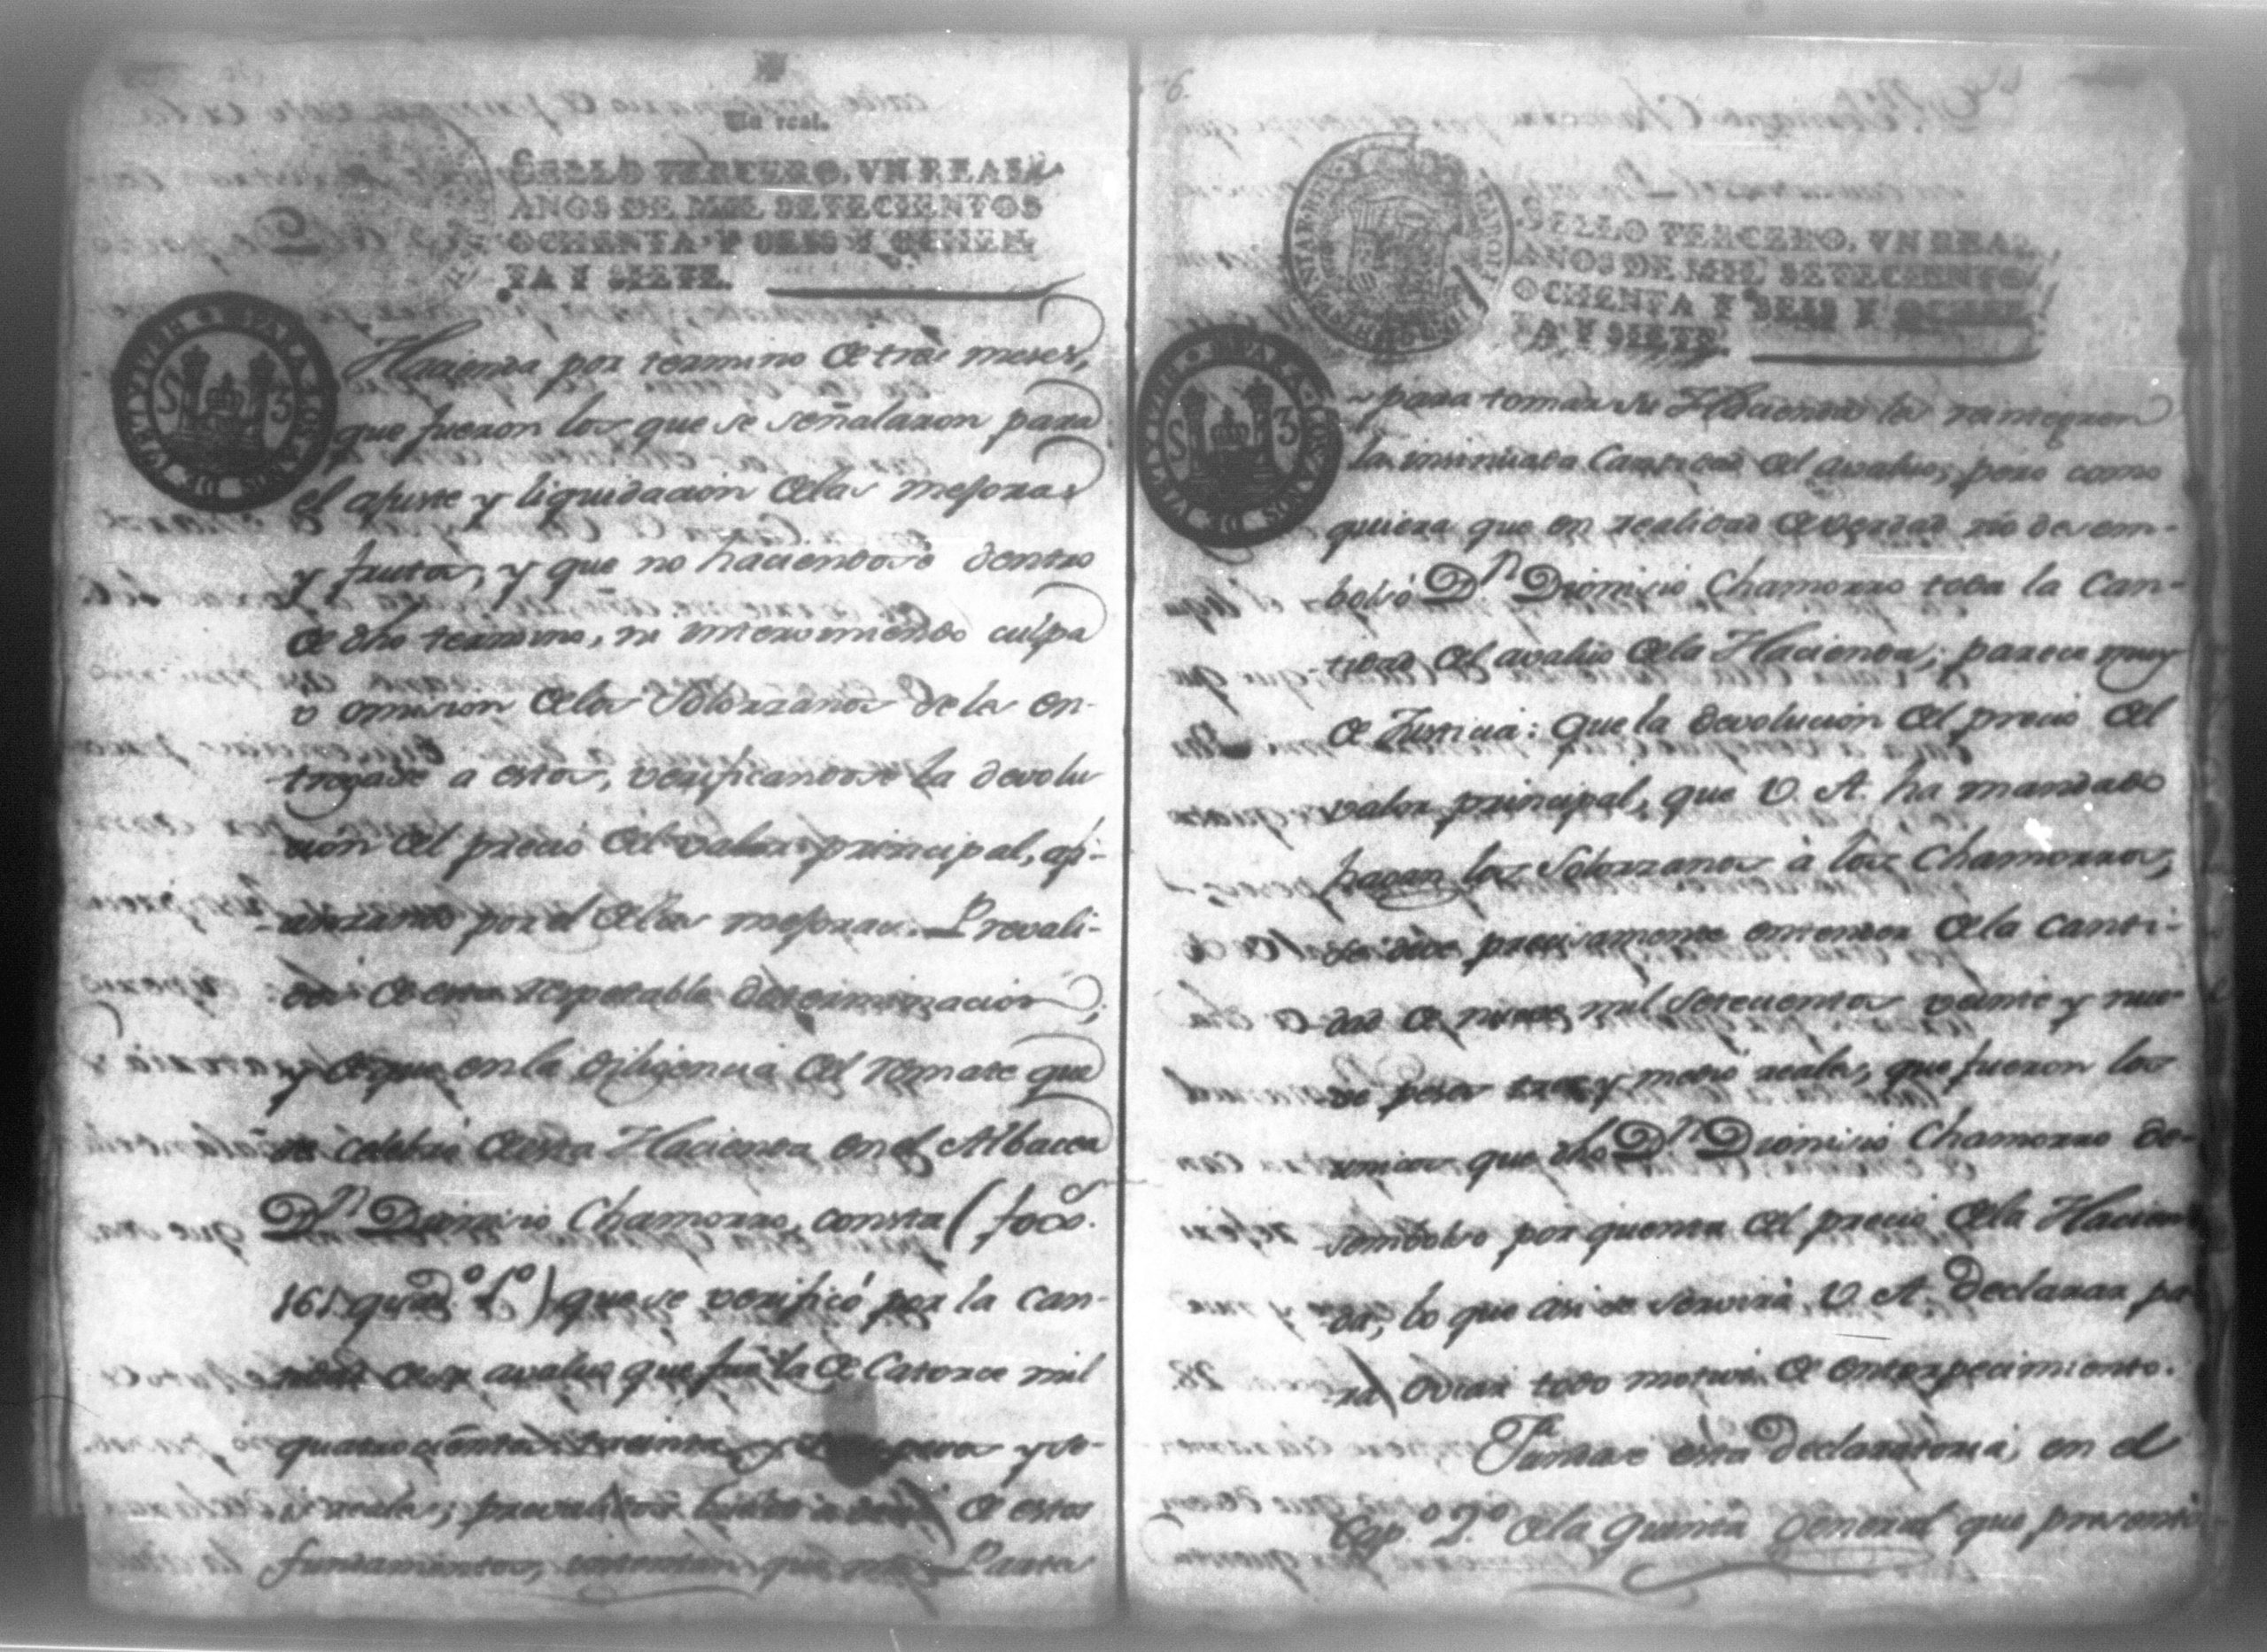 Un real.
SELLO TERCERO, VN REAL,
AÑOS DE MIL SETECIENTOS
OCHENTA Y SEIS Y OCHEN-
TA Y SIETE.
Hacienda por termino de tres meses,
que fueron los que se señalaron para
el ajuste y liquidacion de las mejoras
y frutos, y que no haciendose dentro
de dho termino, ni interviniendo culpa
o omision de los Solorzanos se les en-
tregase a estos, verificandose la devolu
cion del precio del valor principal, afi-
anzando por el de las mejoras. Prevali-
dos de esta respetable determinacion,
y de que en la diligencia del remate que
se celebró de esta Hacienda en el Albacea
Dn Dionisio Chamorro, consta (fox.
161 quad.o 1o) que se verificó por la can-
tidad de su avaluo que fue la de Catorce mil
quatrocientos treinta y pesos y se-
is reales; de estos
fundamentos, que mis Partes
6.
SELLO TERCERO, VN REAL,
AÑOS DE MIL SETECIENTOS
OCHENTA Y SEIS Y OCHEN-
TA Y SIETE.
para tomar su Hacienda les reintegren
la insinuada Cantidad del avaluo; pero como
quiera que en realidad de verdad no desem-
bolsó Dn Dionisio Chamorro toda la Can-
tidad del avaluo de la Hacienda; parece muy
de Justicia: que la devolucion del precio del
valor principal, que V. A. ha mandado
hagan los Solorzanos à los Chamorros,
se dice precisamente entender de la canti-
dad de nueve mil setecientos veinte y nue-
ve pesos tres y medio reales, que fueron los
unicos que dho Dn Dionisio Chamorro de-
sembolso por quenta del precio de la Hacien
da, lo que asi se servirá V. A. declarar pa
ra obviar todo motivo de entorpecimiento.
Fundase esta declaratoria, en el
Cap.o 2.o de la quenta general que presentó